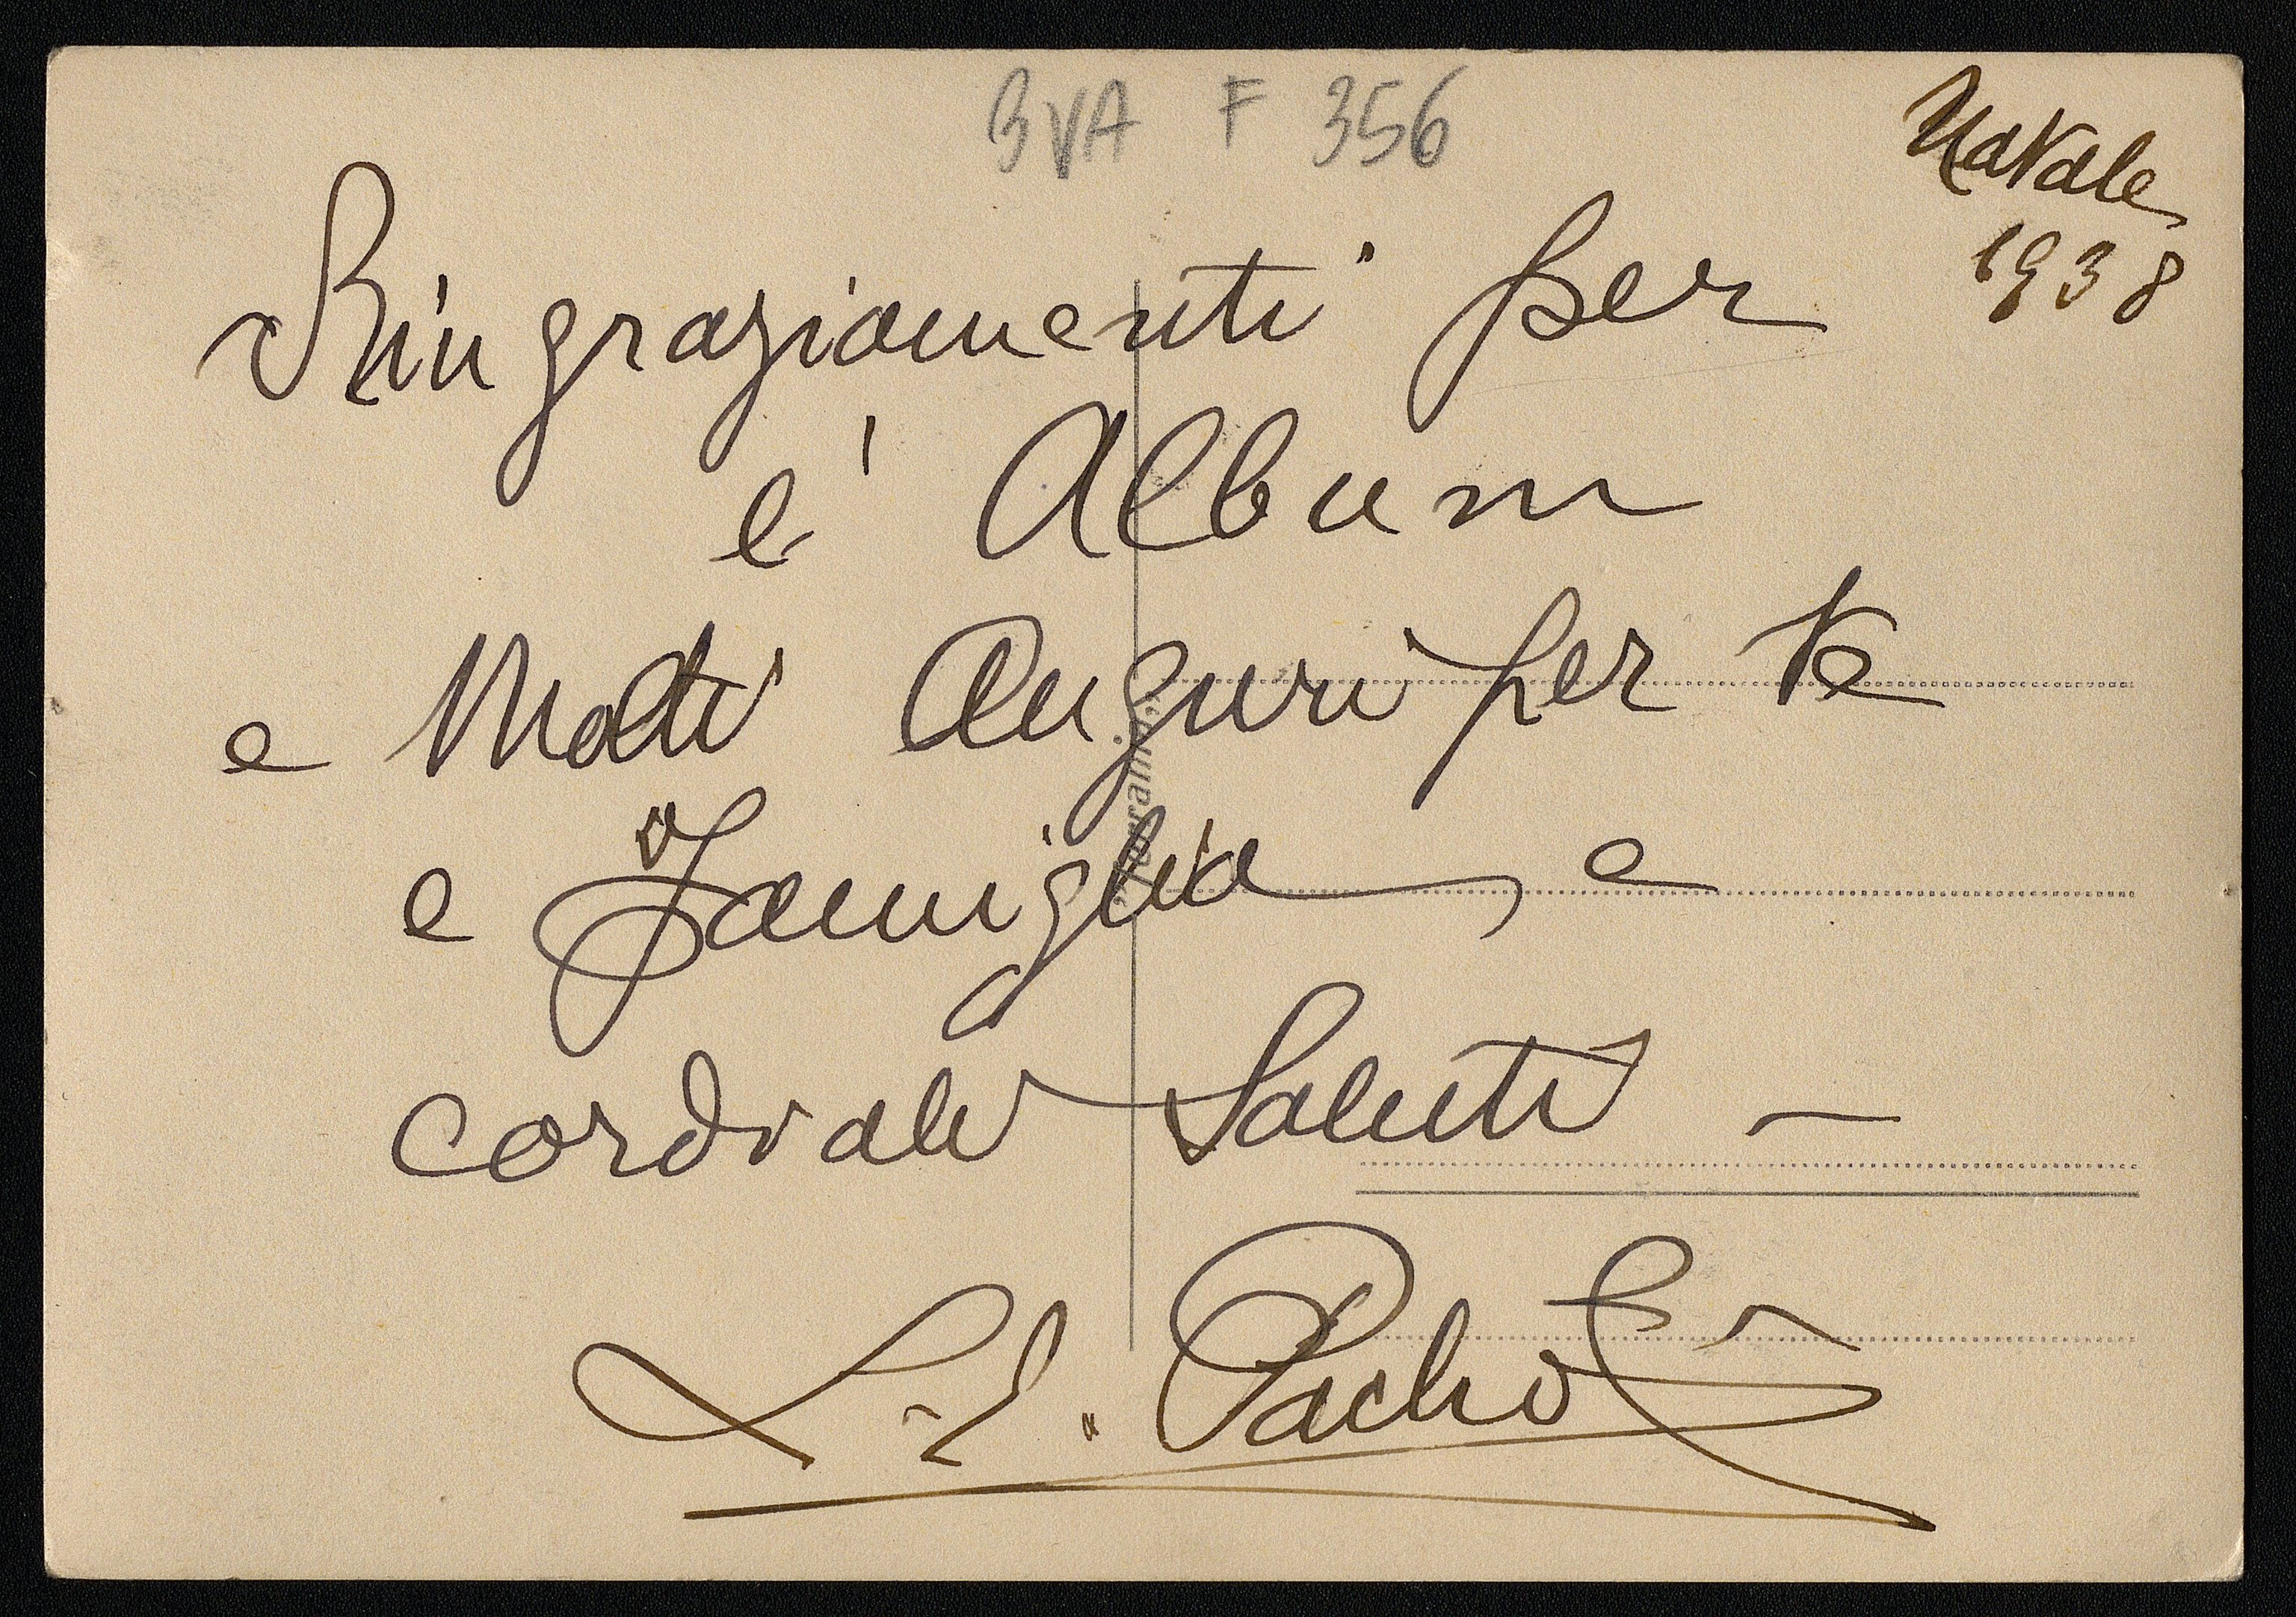 BVA F 356
Natale
1938
Ringraziamenti per
l' Album
e Molti Auguri per te
e Famiglia, e
cordiali Saluti —